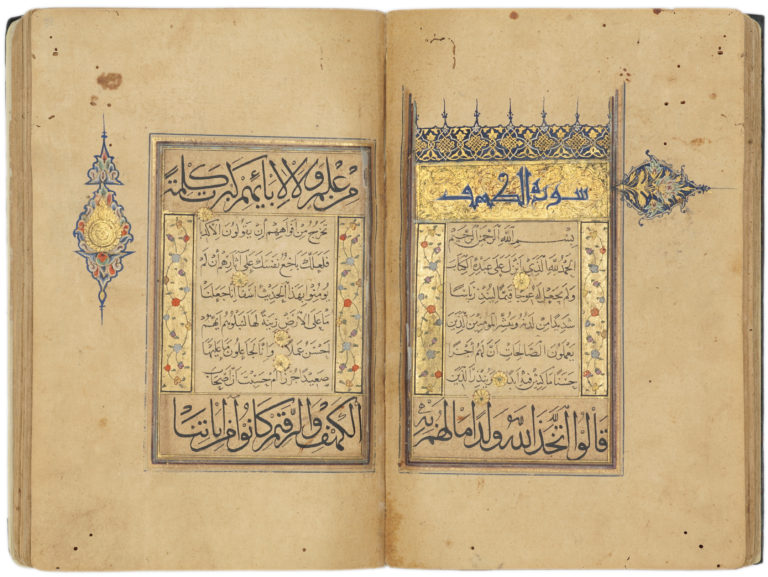 سورة الكهف
بِسْمِ اللَّهِ الرَّحْمَنِ الرَّحِيمِ
اَلْحَمْدُ لِلَّهِ الَّذِي اَنْزَلَ عَلَى عَبْدِهِ الْكِتَابَ
وَلَمْ يَجْعَلْ لَهُ عِوَجًا قَيِّمًا لِيُنْذِرَ بَأْسًا
شَدِيدًا مِنْ لَدُنْهُ وَيُبَشِّرَ الْمُؤْمِنِينَ الَّذِينَ
يَعْمَلُونَ الصَّالِحَاتِ اَنَّ لَهُمْ اَجْرًا
حَسَنًا مَاكِثِينَ فِيهِ اَبَدًا وَيُنْذِرَ الَّذِينَ
قَالُوا اتَّخَذَ اللَّهُ وَلَدًا مَا لَهُمْ بِهِ
مِنْ عِلْمٍ وَلَا لِابَائِهِمْ كَبُرَتْ كَلِمَةً
تَخْرُجُ مِنْ اَفْوَاهِهِمْ اِنْ يَقُولُونَ اِلَّا كَذِبًا
فَلَعَلَّكَ بَاخِعٌ نَفْسَكَ عَلَى اثَارِهِمْ اِنْ لَمْ
يُؤْمِنُوا بِهَذَا الْحَدِيثِ اَسَفًا اِنَّا جَعَلْنَا
مَا عَلَى الْاَرْضِ زِينَةً لَهَا لِنَبْلُوَهُمْ اَيُّهُمْ
اَحْسَنُ عَمَلًا وَاِنَّا لَجَاعِلُونَ مَا عَلَيْهَا
صَعِيدًا جُرُزًا اَمْ حَسِبْتَ اَنَّ اَصْحَابَ
الْكَهْفِ وَالرَّقِيمِ كَانُوا مِنْ ايَاتِنَا